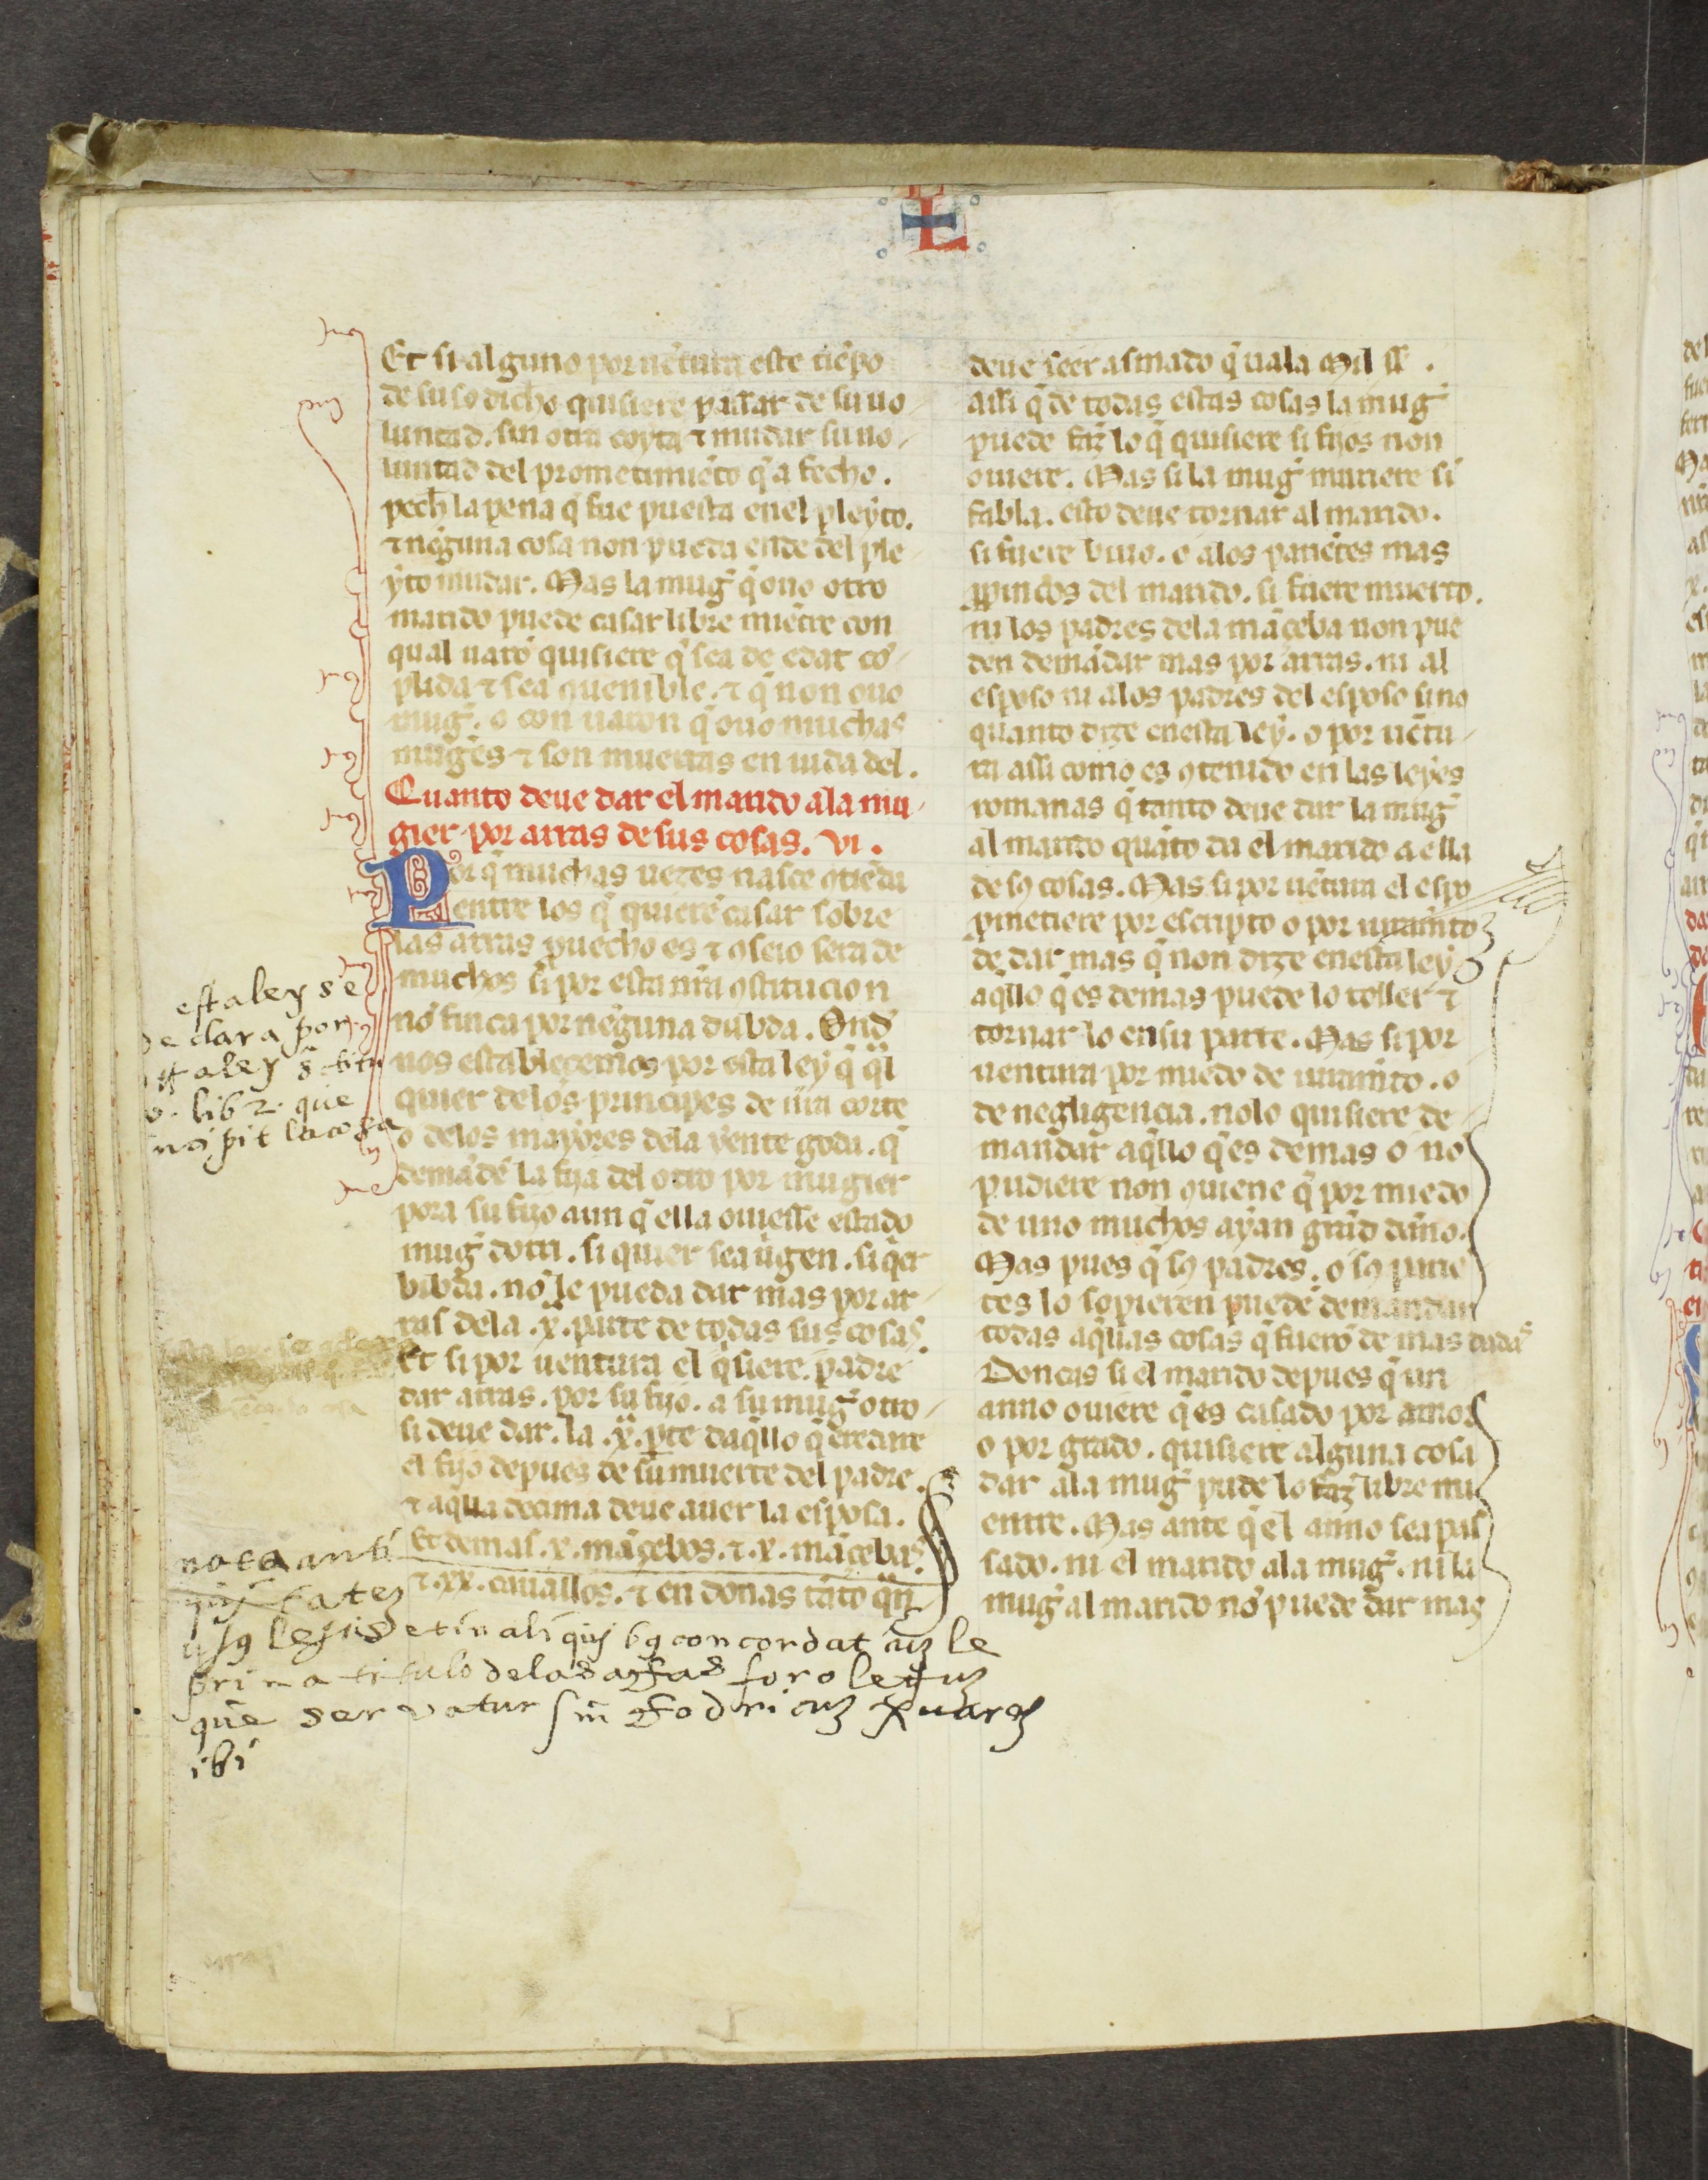 L
Et si alguno por uẽtura este tiẽpo
de suso dicho quisiere passar de su uo
luntad. sin otra coyta ⁊ mudar su uo
luntad del prometimiẽto q̃ a fecho.
pech la pena q̃ fue puesta enel pleyto.
⁊ neguna cosa non pueda ende del ple
yto mudar. Mas la mug̃ q̃ ouo otro
marido puede casar libre miẽtre con
qual uarõ quisiere q̃ sea de edat cõ
plida ⁊ sea ꝯuenible. ⁊ q̃ non ouo
mug̃. o con uaron q̃ ouo muchas
mug̃es ⁊ son muertas en uida del.
Quanto deue dar el marido ala mu
gier por arras de sus cosas. vi.
Por q̃ muchas uezes nasce ꝯtieda
entre los q̃ quierẽ casar sobre
las arras puecho es ⁊ ꝯseio sera de
muchos si por esta nr̃a ꝯstitucion
nõ finca por neguna dubda. Ond
nos establecemos por esta ley q̃ q̃l
quier delos principes de nr̃a corte
o delos mayores dela yente goda. q̃
demãdẽ la fija del otro por mugier
pora su fijo aun q̃ ella ouiesse estado
mug̃ dotri. si quier sea uĩgen. si q̃er
bibda. nõ le pueda dar mas por ar
ras dela .x. parte de todas sus cosas.
Et si por uentura el q̃siere. padre
dar arras. por su fijo. a su mug̃ otro
si deue dar. la .x. pte daq̃llo q̃ eredare
el fijo depues de su muerte del padre.
⁊ aq̃lla decima deue auer la esposa.
Et demas .x. mãçebos. ⁊ .x. mãçebas.
⁊ .xx. cauallos. ⁊ en donas tãto q̃n
deue seer asmado q̃ uala Mil ss̃.
assi q̃ de todas estas cosas la mug̃
puede faz̃ lo q̃ quisiere si fijos non
ouiere. Mas si la mug̃ muriere si
fabla. esto deue tornar al marido.
si fuere biuo. o alos pariẽtes mas
ꝓpincos del marido. si fuere muerto.
ni los padres dela mãçeba non pue
den demãdar mas por arras. ni al
esposo ni alos padres del esposo sino
quanto dize enesta ley. o por uẽtu
ra assi como es ꝯtenido en las leyes
romanas q̃ tanto deue dar la mug̃
al marido quãto da el marido a ella
de sꝯ cosas. Mas si por uẽtura el espo
ꝓmetiere por escripto o por iuramĩto
de dar mas q̃ non dize enesta ley
aq̃llo q̃ es demas puede lo toller ⁊
tornar lo en su parte. Mas si por
uentura por miedo de iuramĩto. o
de negligencia. nolo quisiere de
mandar aq̃llo q̃ es demas o no
pudiere non ꝯuiene q̃ por miedo
de uno muchos ayan grãd dãno.
Mas pues q̃ sꝯ padres. o sꝯ parie
tes lo sopieren puedẽ demandar
todas aq̃llas cosas q̃ fuerõ de mas dadas
Doncas si el marido depues q̃ un
anno ouiere q̃ es casado por amor
o por grado. quisiere alguna cosa
dar ala mug̃ pude lo faz̃ libre mi
entre. Mas ante q̃ el anno sea pas
sado. ni el marido ala mug̃. ni la
mug̃ al marido nõ puede dar mas
esta ley se
declara por
la ley s̃ titu
lib 2. que
incipit la cosa
nota anti
quitatez
legis et in aliquibꝯ concordat cuz le
prima titulo de las arras foro leguz
que servatur sm̃ Rodricuz Xuarez
ibi